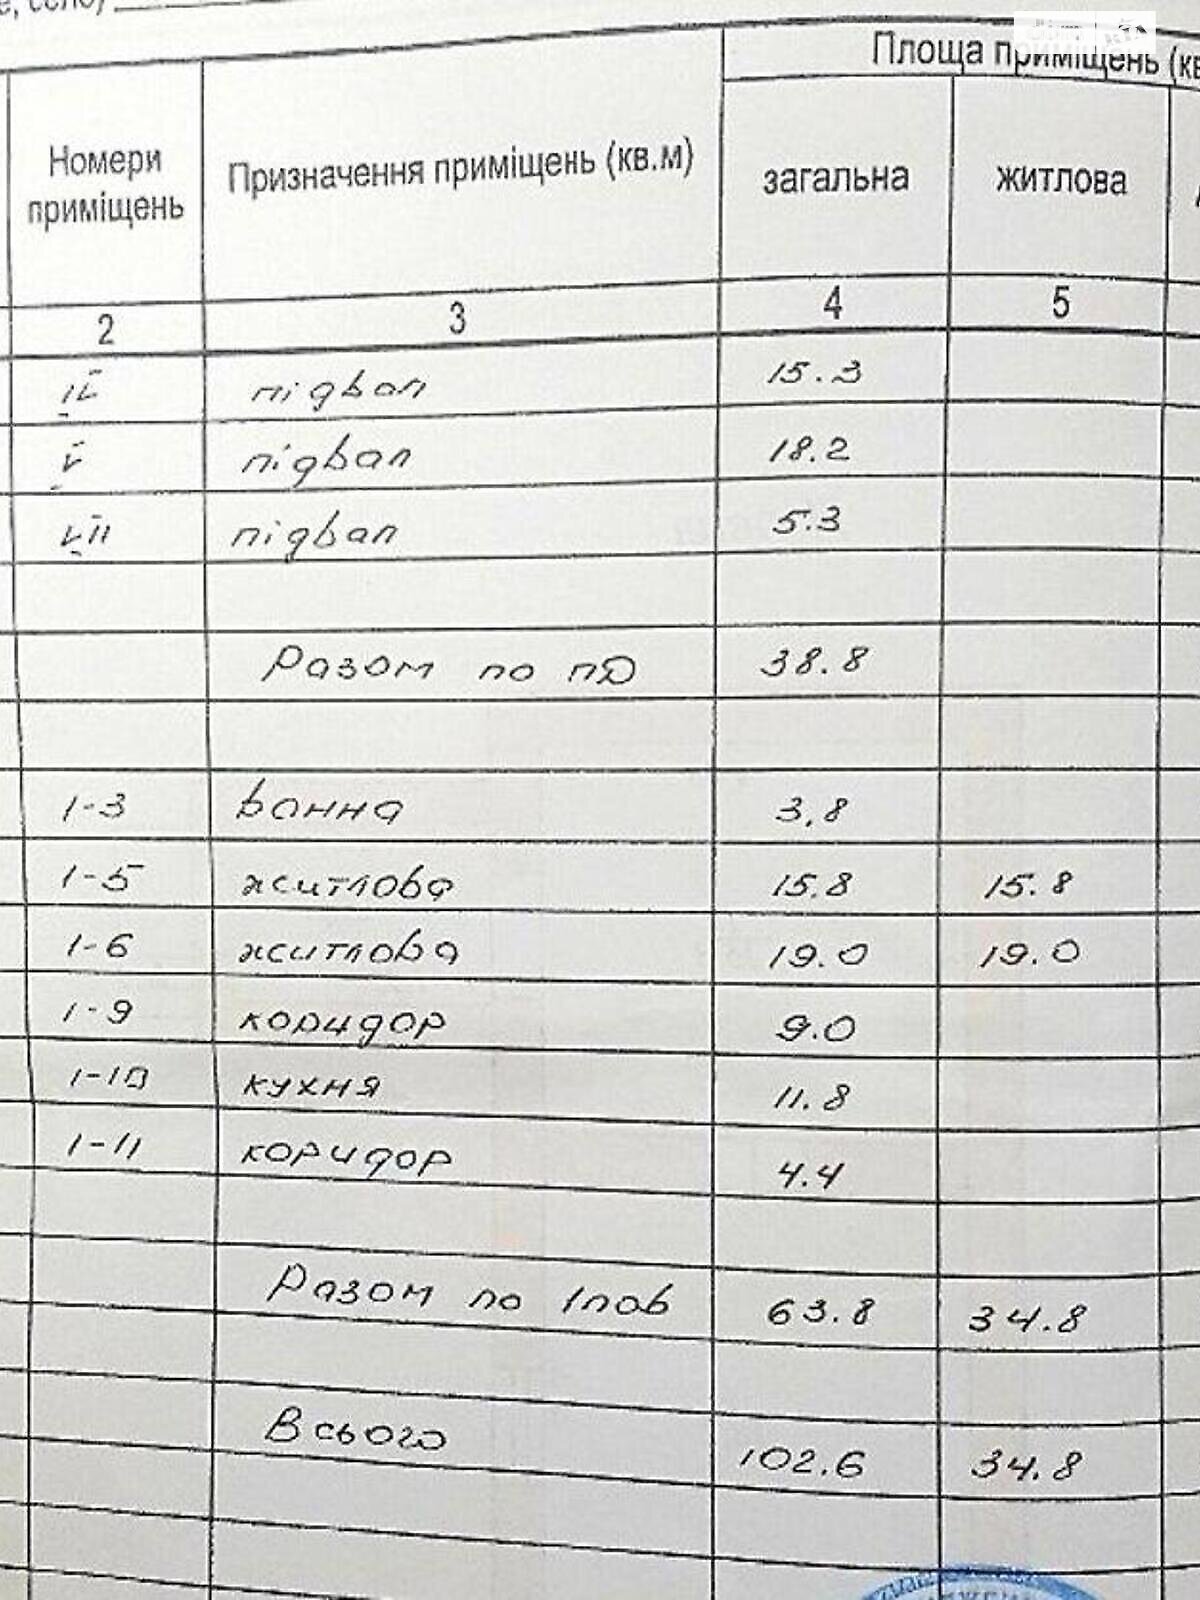 Площа приміщень (кв
Номери приміщень
Призначення приміщень (кв.м)
загальна
житлова
2 3 4 5
підвал 15.3
V підвал 18.2
VII підвал 5.3
Разом по пд 38.8
1-3 ванна 3,8
1-5 житлова 15.8 15.8
1-6 житлова 19.0 19.0
1-9 коридор 9.0
1-10 кухня 11.8
1-11 коридор 4.4
Разом по 1пов 63.8 34.8
Всього 102.6 34.8